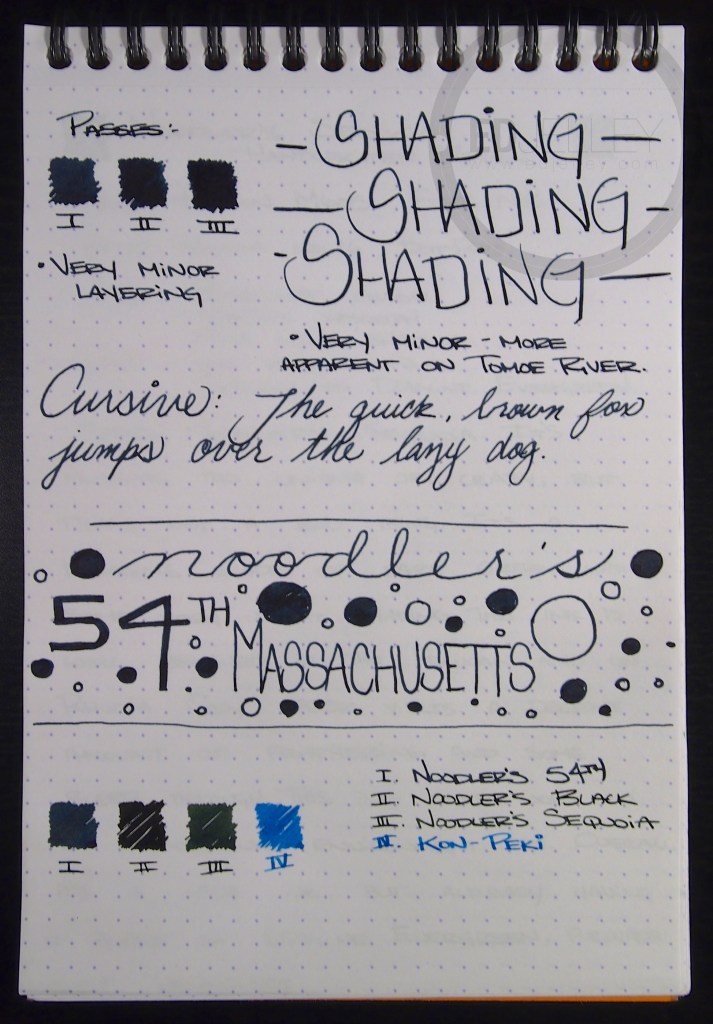 Passes:-
I II III
• Very minor
layering
- Shading -
- Shading -
- Shading -
• Very minor - more
apparent on Tomoe River.
Cursive: The quick, brown fox
jumps over the lazy dog.
noodler's
54TH
Massachusetts
I. Noodler's 54th
II. Noodler's Black
III. Noodler's Sequoia
IV. Kon-Peki
I II III IV